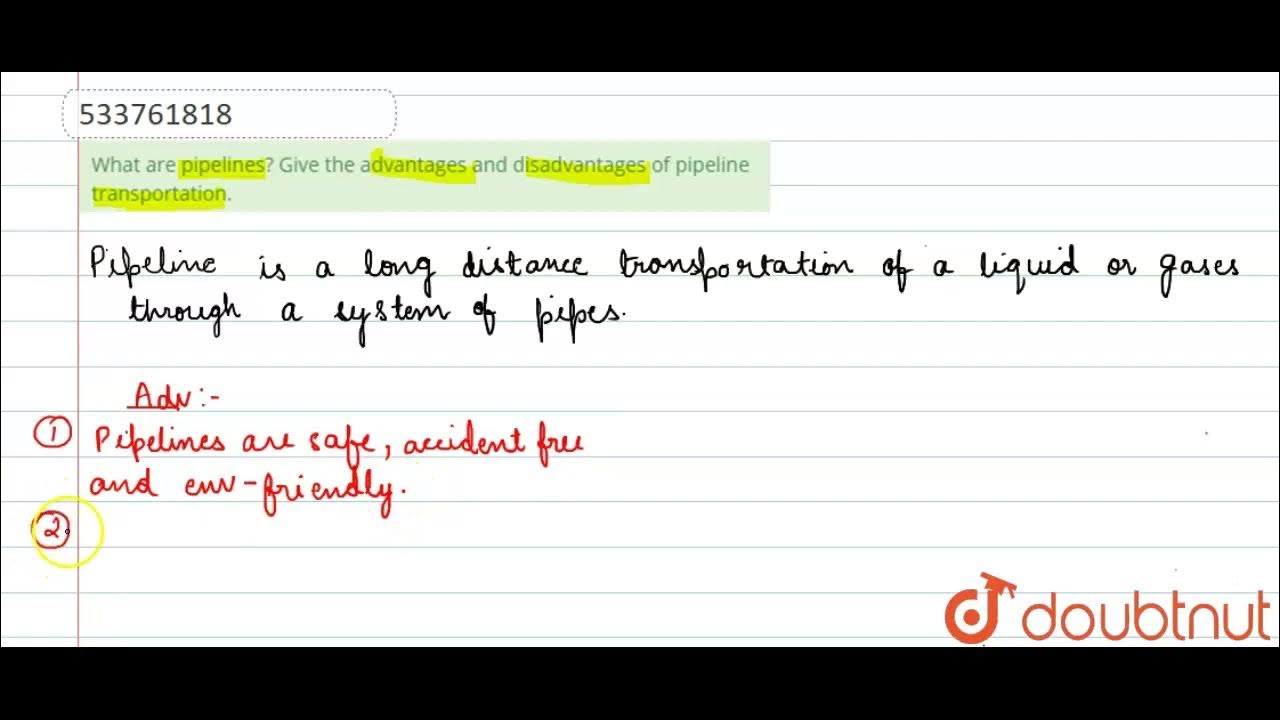 533761818
What are pipelines? Give the advantages and disadvantages of pipeline
transportation.
Pipeline is a long distance transportation of a liquid or gases
through a system of pipes.
Adv :-
① Pipelines are safe, accident free
and env-friendly.
②
doubtnut